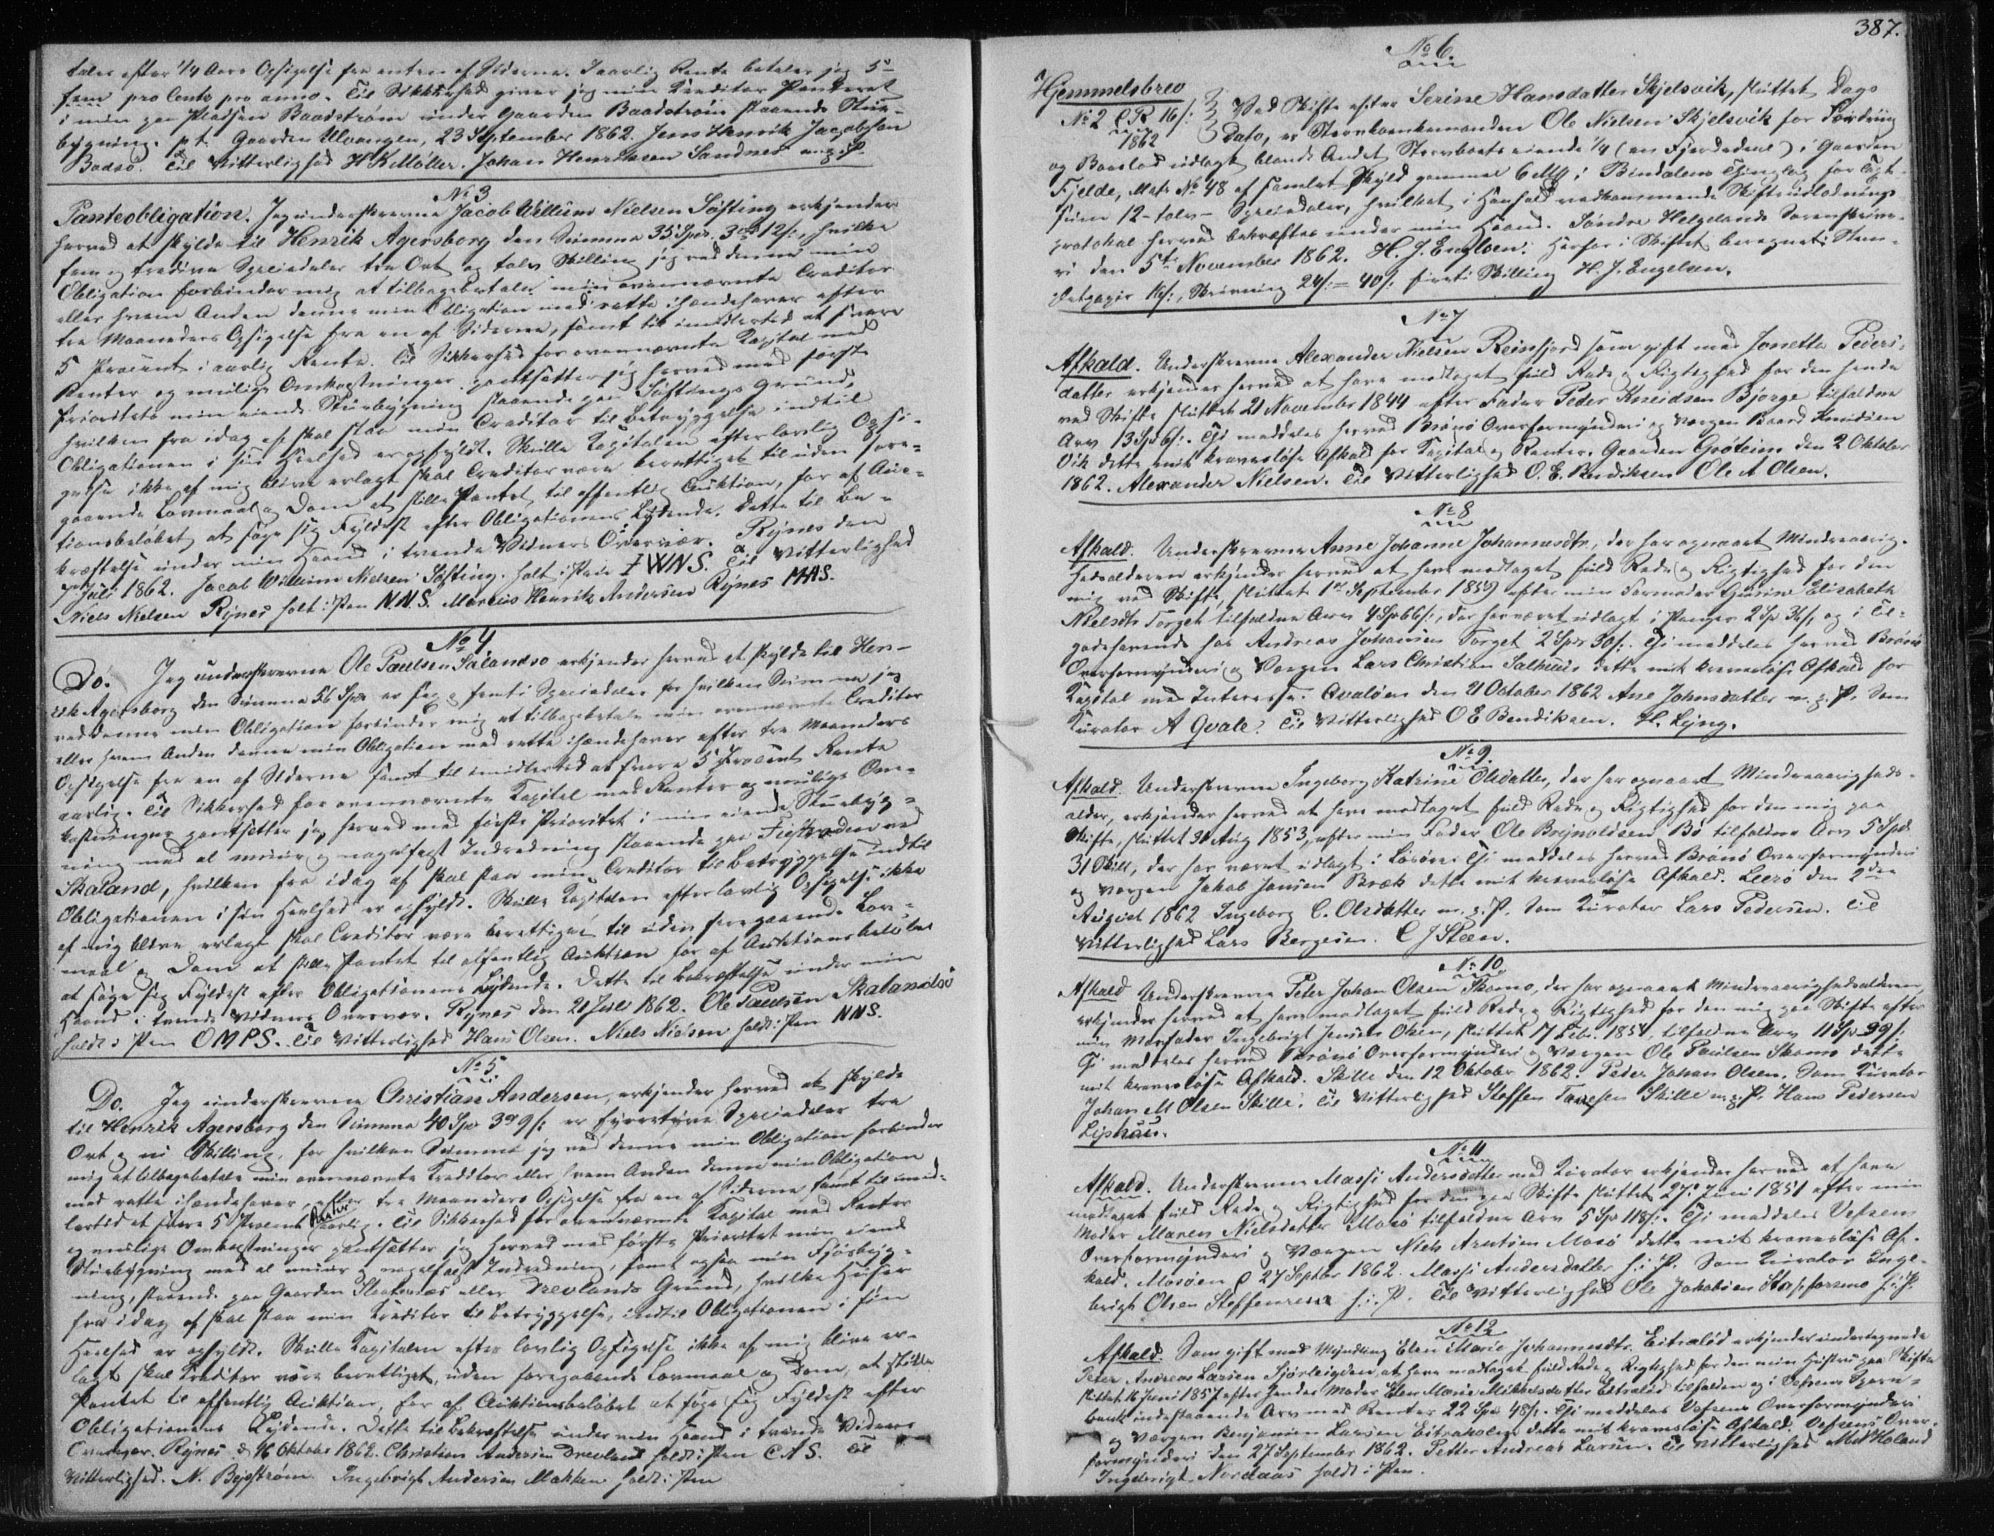 taler efter 1/4 Aars Opsigelse fra enten af Siderne. I aarlig Rente betaler jeg 5 -
fem pro Cento pro anno. Til Sikkerhed giver jeg min Creditor Panteret
i min paa Pladsen Baadstrøm under Gaarden Baadstrøm staaende Stue-
bygning. p.t. Gaarden Ulvangen, 23 September 1862. Jens Henrik Jacobsen
Badsø. Til Vitterlighed H Kelløller. Johan Henriksen Sandnes m.p.P.
No 3
Panteobligation. Jeg underskrevne Jacob Willum Nielsen Søfting erkjender
herved at skylde til Henrik Agersborg den Summa 35 Spd. 3 Ort 12 s., hvilke
fem og tredive Speciedaler tre Ort og tolv Skilling jeg ved denne min
Obligation forbinder mig at tilbagebetale min ovennævnte Creditor
eller hvem Anden denne min Obligation med rette ihændehaver efter
tre Maaneders Opsigelse fra en af Siderne, samt til imidlertid at svare
5 Procent i aarlig Rente. Til Sikkerhed for ovennævnte Kapital med
Renter og mulige Omkostninger pantsætter jeg herved med første
Prioritets min eiende Stuebygning staaende paa Søftings Grund,
hvilken fra idag af skal staa min Creditor til Betryggelse indtil
Obligationen i sin Heelhed er opfyldt. Skulle Kapitalen efter lovlig Opsi-
gelse ikke af mig blive erlagt skal Creditor være berettiget til uden fore-
gaaende Lovmaal og Dom at stille Pantet til offentlig Auktion, for af Auc-
tionsbeløbet at søge sig Fyldest efter Obligationens Lydende. Dette til Be-
kræftelse under min Haand i tvende Vidners Overvær. Rynes den
7 Juli 1862. Jacob Willum Nielsen Søfting. holt i Pen I W N S. Til Vitterlighed
Niels Nielsen Rynes holt i Pen N.N.S. Marcus Henrik Andersen Rynes MHAS.
No 4
Do. Jeg underskrevne Ole Paulsen Salandsø erkjender herved at skylde til Hen-
rik Agersborg den Summa 56 Spd er sex og femti Speciedaler for hvilken Summa jeg
ved denne min Obligation forbinder mig at tilbagebetale min ovennævnte Creditor
eller hvem Anden denne min Obligation med rette ihændehaver efter tre Maaneders
Opsigelse fra en af Siderne samt til imidlertid at svare 5 Procent Rente
aarlig. Til Sikkerhed for ovennævnte Kapital med Renter og mulige Om-
kostninger pantsætter jeg herved med første Prioritet i min eiende Stuebyg-
ning med al muur og nagelfast Indredning staaende paa ved
Skaland, hvilken fra idag af skal staa min Creditor til Betryggelse indtil
Obligationen i sin Heelhed er opfyldt. Skulle Kapitalen efter lovlig Opsigelse ikke
af mig blive erlagt skal Creditor være berettiget til uden foregaaende Lov-
maal og Dom at stille Pantet til offentlig Auktion for af Auktionsbeløbet
at søge sig Fyldest efter Obligationens Lydende. Dette til Bekræftelse under min
Haand i tvende Vidners Overvær. Rynes den 21 Juli 1862. Ole Paulsen Skalandsø
holdt i Pen O M P S. Til Vitterlighed Hans Olsen. Niels Nielsen holdt i Pen N N S.
No 5
Do. Jeg underskrevne Christian Andersen, erkjender herved at skylde
til Henrik Agersborg den Summa 40 Spd 3 Ort 9 s. er fyrretyve Speciedaler tre
Ort og ni Skilling, for hvilken Summa jeg ved denne min Obligation forbinder
mig at tilbagebetale min ovennævnte Kreditor eller hvem Anden denne min Obligation
med rette ihændehaver, efter tre Maaneders Opsigelse fra en af Siderne samt til imid-
lertid at svare 5 Procent Renter aarlig. Til Sikkerhed for ovennævnte Kapital med Renter
og mulige Omkostninger pantsætter jeg herved med første Prioritet min eiend
Stuebygning med al muur og nagelfast Indredning, samt ogsaa min Fjøsbyg-
ning, staaende paa Gaarden eller Drevlands Grund, hvilke Huser
fra idag af skal staa min Kreditor til Betryggelse, indtil Obligationen i sin
Heelhed er opfyldt. Skulle Kapitalen efter lovlig Opsigelse ikke af mig blive er-
lagt skal Creditor være berettiget, uden foregaaende Lovmaal og Dom, at stille
Pantet til offentlig Auktion, for af Auktionsbeløbet at søge sig Fyldest efter
Obligationens Lydende. Dette til Bekræftelse under min Haand i tvende Vidners
Overvær. Rynes d. 16 Oktober 1862. Christian Andersen Drevland holdt i Pen C A S. Til
Vitterlighed. N. Bystrøm. Ingebrigt Andersen Makken holdt i Pen
387.
No 6
Hjemmelsbrev
No 2 C.R. 16 s.
1862
Ved Skifte efter Serine Hansdatter Skjelsvik, sluttet Dags
Dato, er Stervboenkemanden Ole Nielsen Skjelsvik for Fordring
og Boeslod udlagt blandt Andet Stervboets eiende 1/4 (en Fjerdedeel) i Gaarden
Fjelde, Matr. No 48 af samlet Skyld gammel 6 Mk i Bindalens Thinglag for Taxt-
sum 12 - tolv - Speciedaler, hvilket i Henhold vedkommende Skifteudlodnings
protokol herved bekræftes under min Haand. Søndre Helgelands Sorenskrive-
ri den 5te November 1862. H. J. Engelsen. Herfor i Skiftet beregnet: Stem-
pelpapir 16 s., Skrivning 24 s. = 40 s. firti Skilling H. J. Engelsen.
No 7
Afkald. Underskrevne Alexander Nielsen Reinfjord som gift med Jonetta Peders-
datter erkjender herved at have modtaget fuld Rede og Rigtighed for den hende
ved Skifte sluttet 21 November 1844 efter Fader Peder Knudsen Bjørge tilfaldne
Arv 13 Spd 6 s. Thi meddeles herved Brønø Overformynderi og Værgen Baard Knudsen
Vik dette mit kravesløse Afkald for Kapital og Renter. Gaarden Groteim den 2 Oktober
1862. Alexander Nielsen. Til Vitterlighed O. E. Bendiksen Ole A Olsen.
No 8
Afkald. Underskrevne Anne Johanne Johannesdtr, der har opnaaet Mindreaarig-
hedsalderen erkjender herved at have modtaget fuld Rede og Rigtighed for den
mig ved Skifte, sluttet 1ste September 1859 efter min Formoder Gurine Elisabeth
Nielsdtr Torget tilfaldne Arv 4 Spd 66 s., der har været udlagt i Penger 2 Sp 36 s. og i Til-
godehavende hos Andreas Johansen Torget 2 Spd 30 s. Thi meddeles herved Brønø
Overformynderi og Værgen Lars Christian Salhus, dette mit kravesløse Afkald for
Kapital med Interesse. Qvaløen den 21 Oktober 1862 Ane Johnsdatter m.p.P. Som
Kurator A Qvale. Til Vitterlighed O E Bendiksen. H. Lyng.
No 9
Afkald. Underskrevne Ingeborg Katrine Olsdatter, der har opnaaet Mindreaarigheds-
alder, erkjender herved at have modtaget fuld Rede og Rigtighed for den mig paa
Skifte, sluttet 30 Aug 1853, efter min Fader Ole Brynoldsen Bø tilfaldne Arv 5 Spd
31 Skill, der har været udlagt i Løsøre. Thi meddeles herved Brønø Overformynderi
og Værgen Jakob Jansen Bræk dette mit kravesløse Afkald. Leerø den 2den
August 1862 Ingeborg C. Olsdatter m.p.P. Som Kurator Lars Pedersen. Til
Vitterlighed Lars Bergesen. C J Steen.
No 10
Afkald Underskrevne Peter Johan Olsen Skomo, der har opnaaet Mindreaarighedsalderen,
erkjender herved at have modtaget fuld Rede og Rigtighed for den mig paa Skifte efter
min Morfader Ingebrigt Jensen Olsen, sluttet 17 Feb. 1854, tilfaldne Arv 11 Sp 99 s.
Thi meddeles herved Brønø Overformynderi og Værgen Ole Paulsen Skomo dette
mit kravesløse Afkald. Skille den 12 Oktober 1862. Peder Johan Olsen. Som Kurator
Johan M Olsen Skille. Til Vitterlighed Steffen Skille m.p.P. Hans Pedersen
Liphus.
No 11
Afkald. Underskrevne Massi Andersdatter med Kurator erkjender herved at have
modtaget fuld Rede og Rigtighed for den paa Skifte sluttet 27 Juni 1851 efter min
Moder Maren Nielsdatter Mosø tilfaldne Arv 5 Sp 118 s. Thi meddeles Vefsens
Overformynderi og Værgen Niels Arntsen Mosø dette mit kravesløse Af-
kald. Mosøen d 27 Septbr 1862. Massi Andersdatter h.i.P. Som Kurator Inge-
brigt Olsen Steffensrem h.i.P. Til Vitterlighed Ole Jakobsen h.i.P.
No 12
Afkald. Som gift med Myndling Elen Marie Johannesdtr. Eiteraalød erkjender undertegnede
Peter Andreas Larsen at have modtaget fuld Rede og Rigtighed for den min Hustru paa Skifte
sluttet 16 Juni 1857 efter hendes Moder Elen Marie Mikkelsdatter Eiteraalød tilfalden og i Vefsens Spare-
bank indestaaende Arv med Renter 22 Spd 48 s. Thi meddeles Vefsens Overformynderi
og Værgen Benjamin Larsen dette mit kravesløse Afkald. Vefsens Over-
formynderi den 27 September 1862. Petter Andreas Larsen. Til Vitterlighed M H Holand
Ingebrigt Nordaas holdt i Pen.